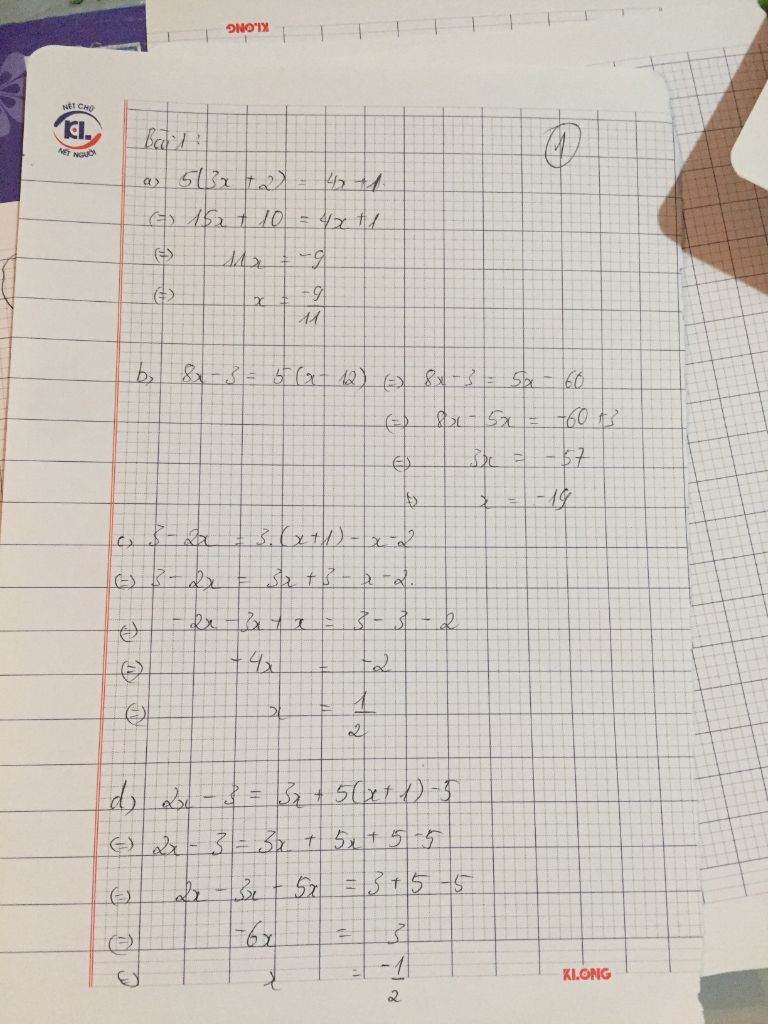 KLONG
NÉT CHỮ
KL
NÉT NGƯỜI
1
Bài 1:
a) 5(3x + 2) = 4x + 1.
(=) 15x + 10 = 4x + 1
(=) 11x = -9
(=) x = -9/11
b) 8x - 3 = 5(x - 12) (=) 8x - 3 = 5x - 60
(=) 8x - 5x = -60 + 3
(=) 3x = -57
(=) x = -19
c) 3 - 2x = 3.(x+1) - x - 2
(=) 3 - 2x = 3x + 3 - x - 2.
(=) -2x - 3x + x = 3 - 3 - 2
(=) -4x = -2
(=) x = 1/2
d) 2x - 3 = 3x + 5(x + 1) - 5
(=) 2x - 3 = 3x + 5x + 5 - 5
(=) 2x - 3x - 5x = 3 + 5 - 5
(=) -6x = 3
(=) x = -1/2
KLONG